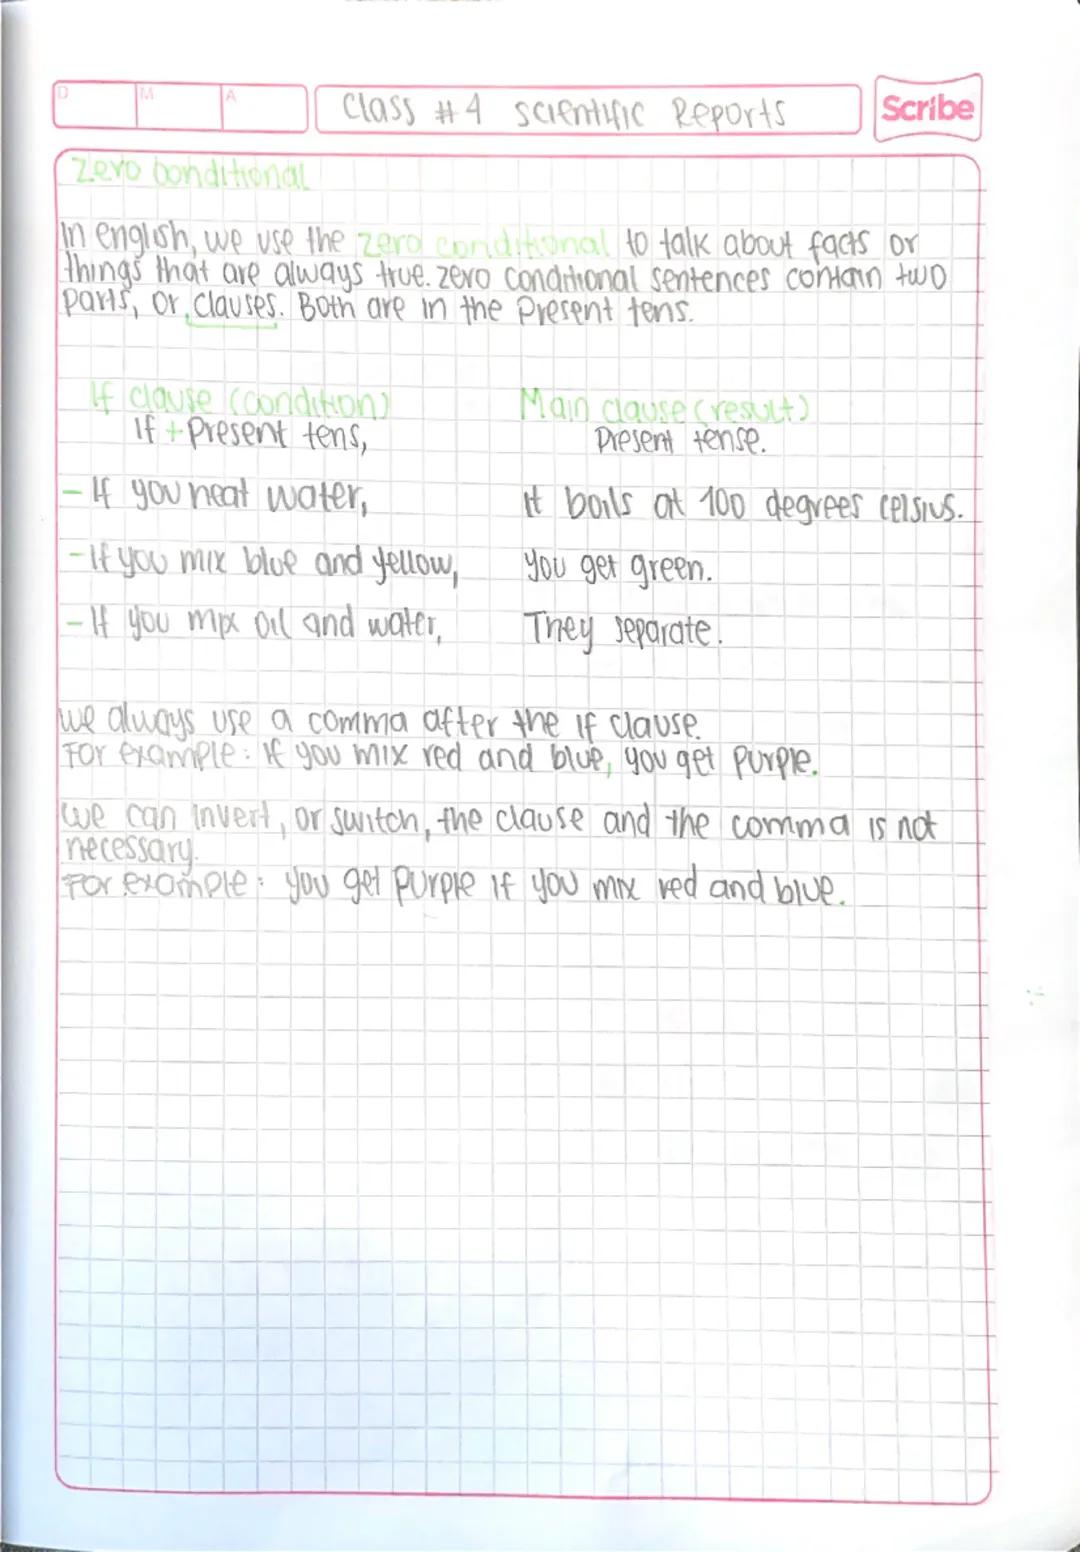 D M A Class #4 scientific Reports Scribe
Zero conditional
In english, we use the zero conditional to talk about facts or
things that are always true. zero conditional sentences contain two
parts, or clauses. Both are in the Present tens.
If clause (condition) Main clause (result)
If + Present tens, Present tense.
- If you heat water, It boils at 100 degrees celsius.
- If you mix blue and yellow, you get green.
- If you mix oil and water, They separate.
we always use a comma after the if clause.
For example: If you mix red and blue, you get purple.
we can invert, or switch, the clause and the comma is not
necessary.
For example: you get purple if you mix red and blue.